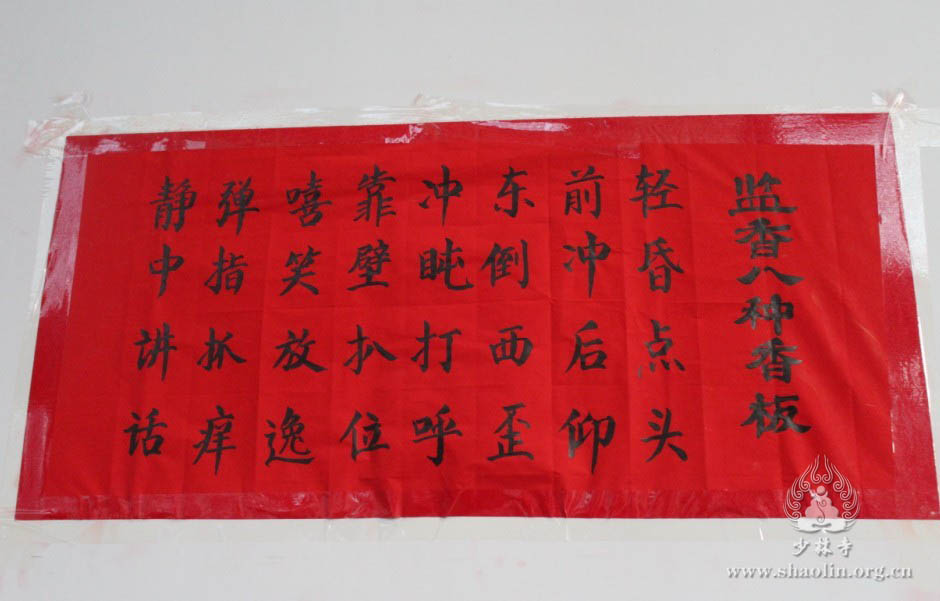 监香八种香板
轻昏点头
前冲后仰
东倒西歪
冲盹打呼
靠壁扒位
嘻笑放逸
弹指抓痒
静中讲话
少林寺
www.shaolin.org.cn